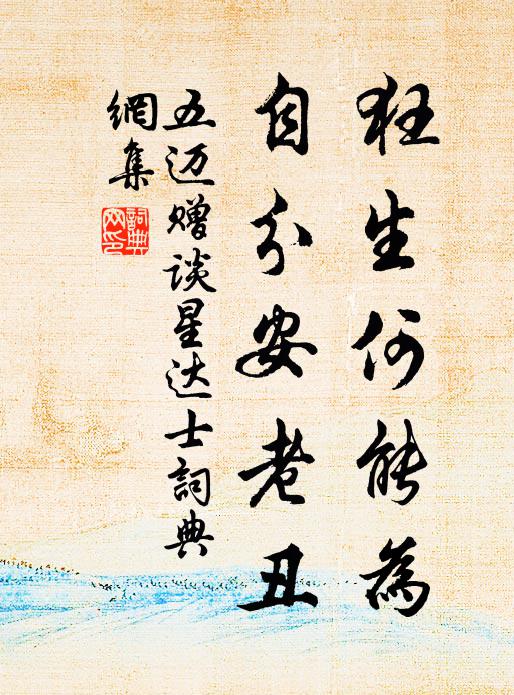 狂生何能為
自分安老丑
五迈赠谈星达士詞典
網集
詞典
网印